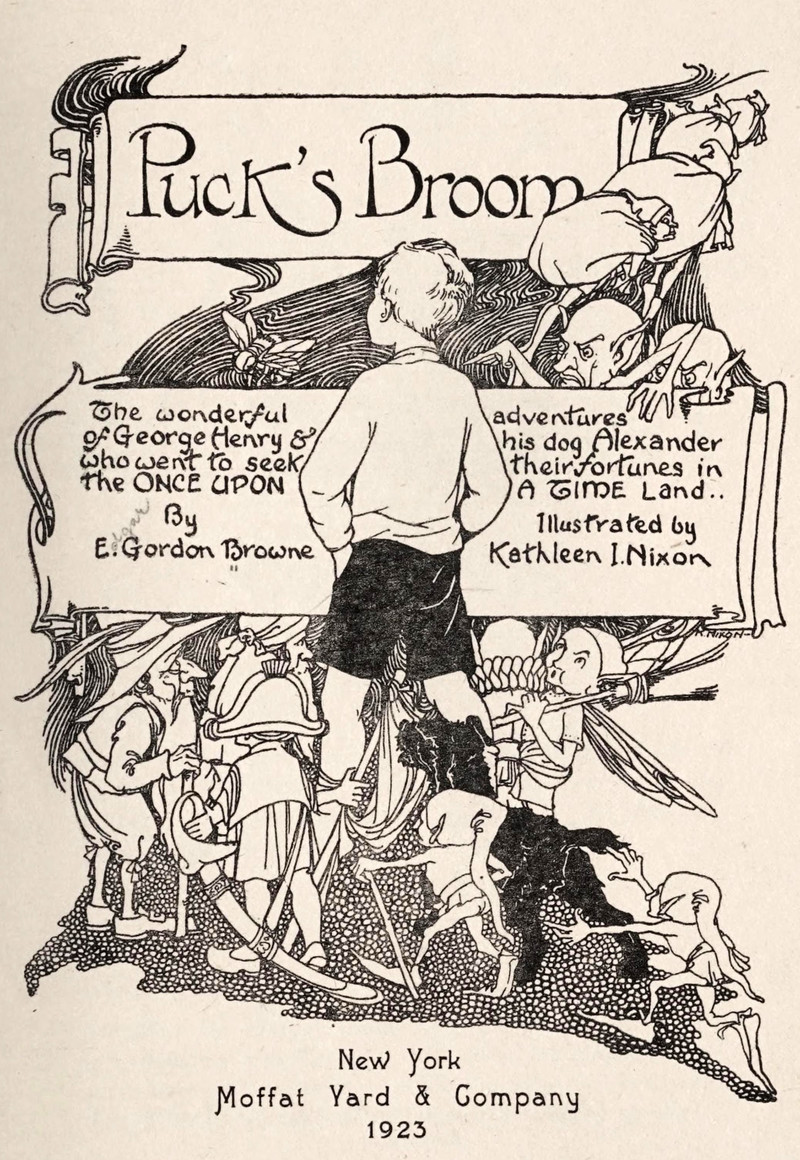 Puck's Broom
The wonderful adventures
of George Henry & his dog Alexander
who went to seek their fortunes in
the ONCE UPON A TIME Land..
By
E. Gordon Browne
Illustrated by
Kathleen I. Nixon
K. NIXON
New York
Moffat Yard & Company
1923